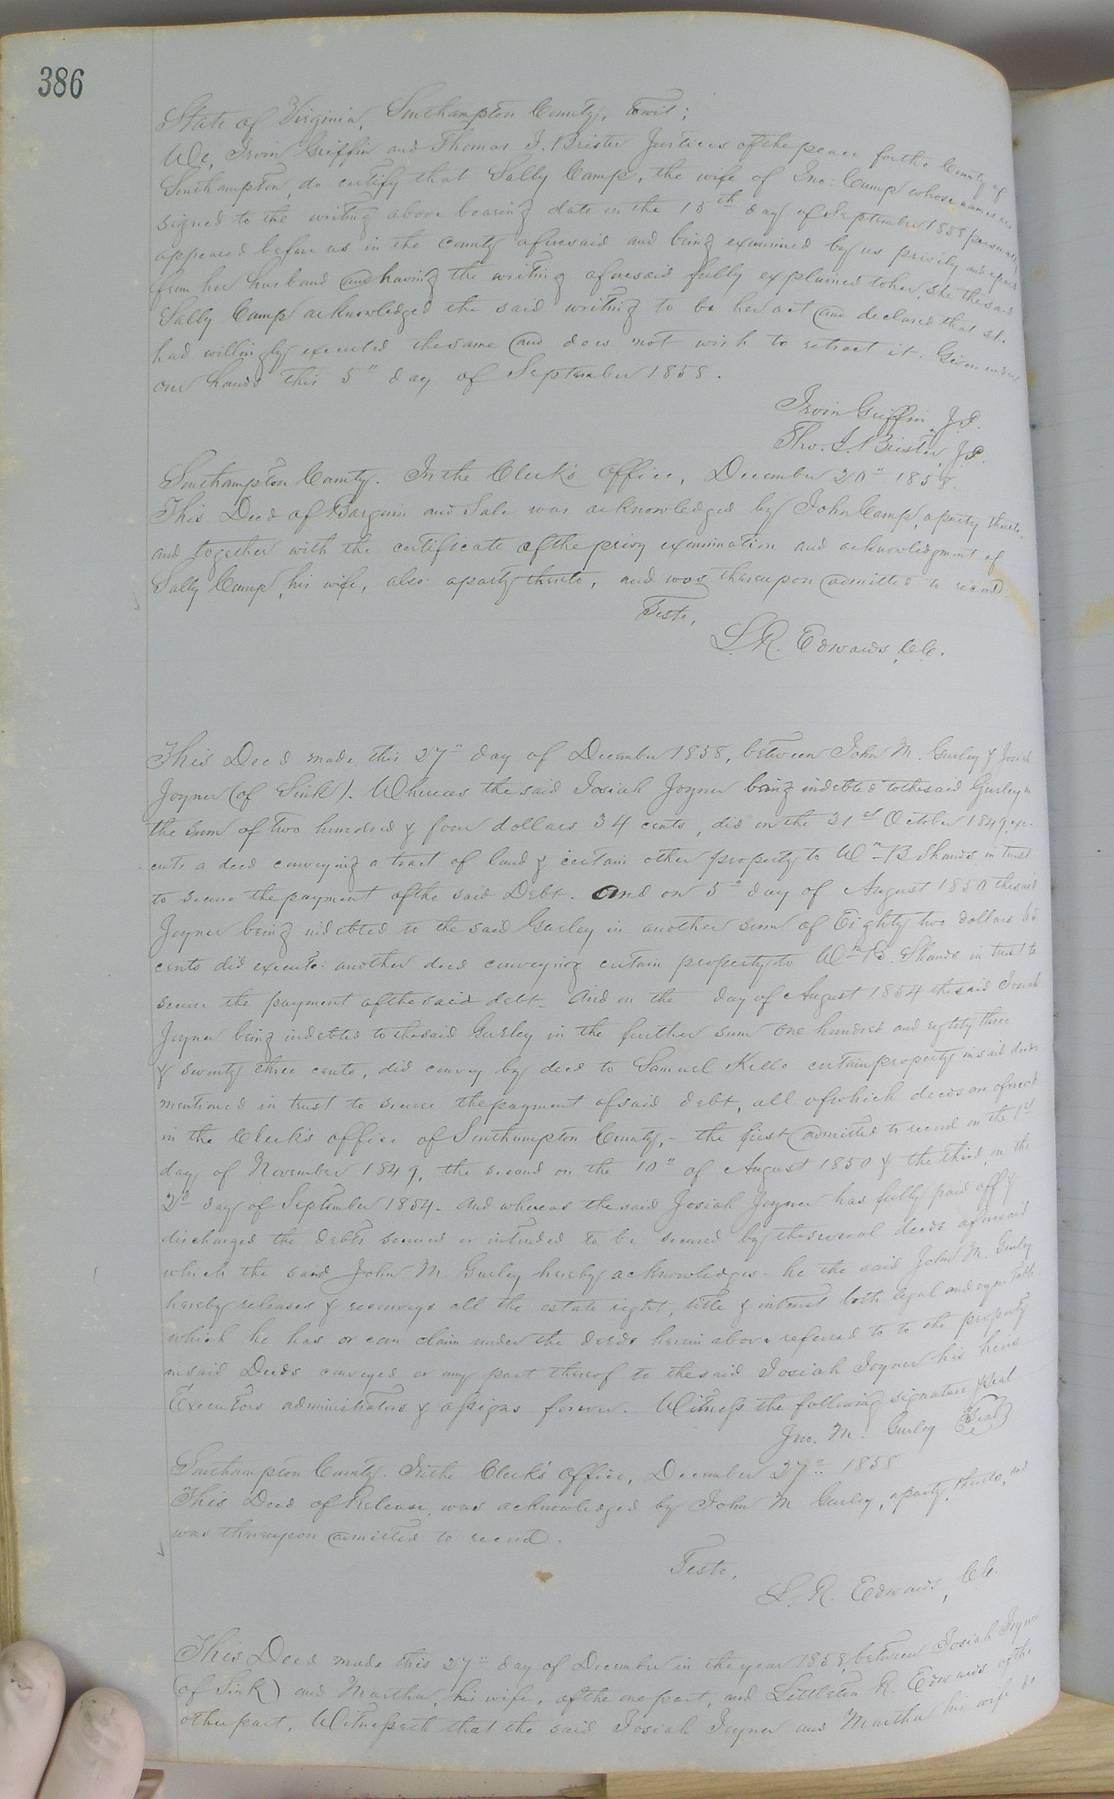 386
State of Virginia, Southampton County, towit;
We, Irvin Griffin and Thomas J. Brister Justices of the peace for the County of
Southampton, do certify that Sally Camp, the wife of Jno: Camp whose names are
signed to the writing above bearing date on the 15th day of September 1858 personally
appeared before us in the county aforesaid and being examined by us privily and apart
from her husband and having the writing aforesaid fully explained to her, she the said
Sally Camp acknowledged the said writing to be her act and declared that she
had willingly executed the same and does not wish to retract it. Given under
our hands this 5" day of September 1858.
Irvin Griffin, J.P.
Tho. J. Brister, J.P.
Southampton County. In the Clerk's Office, December 20" 1858.
This Deed of Bargain and Sale was acknowledged by John Camp, a party thereto,
and together with the certificate of the privy examination and acknowledgment of
Sally Camp, his wife, also a party thereto, and was thereupon admitted to record.
Teste,
L. R. Edwards, C.C.
This Deed made this 27" day of December 1858, between John M. Gurley & Josiah
Joyner (of Sink). Whereas the said Josiah Joyner being indebted to the said Gurley in
the sum of two hundred & four dollars 34 cents, did on the 31st October 1849, exe-
cute a deed conveying a tract of land & certain other property to Wm B Shands in trust
to secure the payment of the said Debt. And on 5th day of August 1850 the said
Joyner being indebted to the said Gurley in another sum of Eighty two dollars
cents did execute another deed conveying certain property to Wm B. Shands in trust to
secure the payment of the said debt. And on the day of August 1854 the said Josiah
Joyner being indebted to the said Gurley in the further sum one hundred and eighty three
& seventy three cents, did convey by deed to Samuel Kello certain property in said deeds
mentioned in trust to secure the payment of said debt, all of which deeds are of record
in the Clerk's office of Southampton County, - the first admitted to record on the 1st
day of November 1849, the second on the 10" of August 1850 & the third, on the
2d day of September 1854. And whereas the said Josiah Joyner has fully paid off &
discharged the debts secured or intended to be secured by the several deeds aforesaid
which the said John M. Gurley hereby acknowledges - he the said John M. Gurley
hereby releases & reconveys all the estate right, title & interest both legal and equitable
which he has or can claim under the deeds herein above referred to to the property
in said Deeds conveyed or any part thereof to the said Josiah Joyner his heirs
Executors administrators & assigns forever. Witness the following signature & seal
Jno. M. Gurley Seal
Southampton County. In the Clerk's Office, December 27" 1858
This Deed of Release was acknowledged by John M Gurley, a party thereto, and
was thereupon admitted to record.
Teste,
L. R. Edwards, C.C.
This Deed made this 27" day of December in the year 1858, between Josiah Joyner
(of Sink) and Martha, his wife, of the one part, and Littleton R. Edwards of the
other part, Witnesseth that the said Josiah Joyner and Martha his wife do